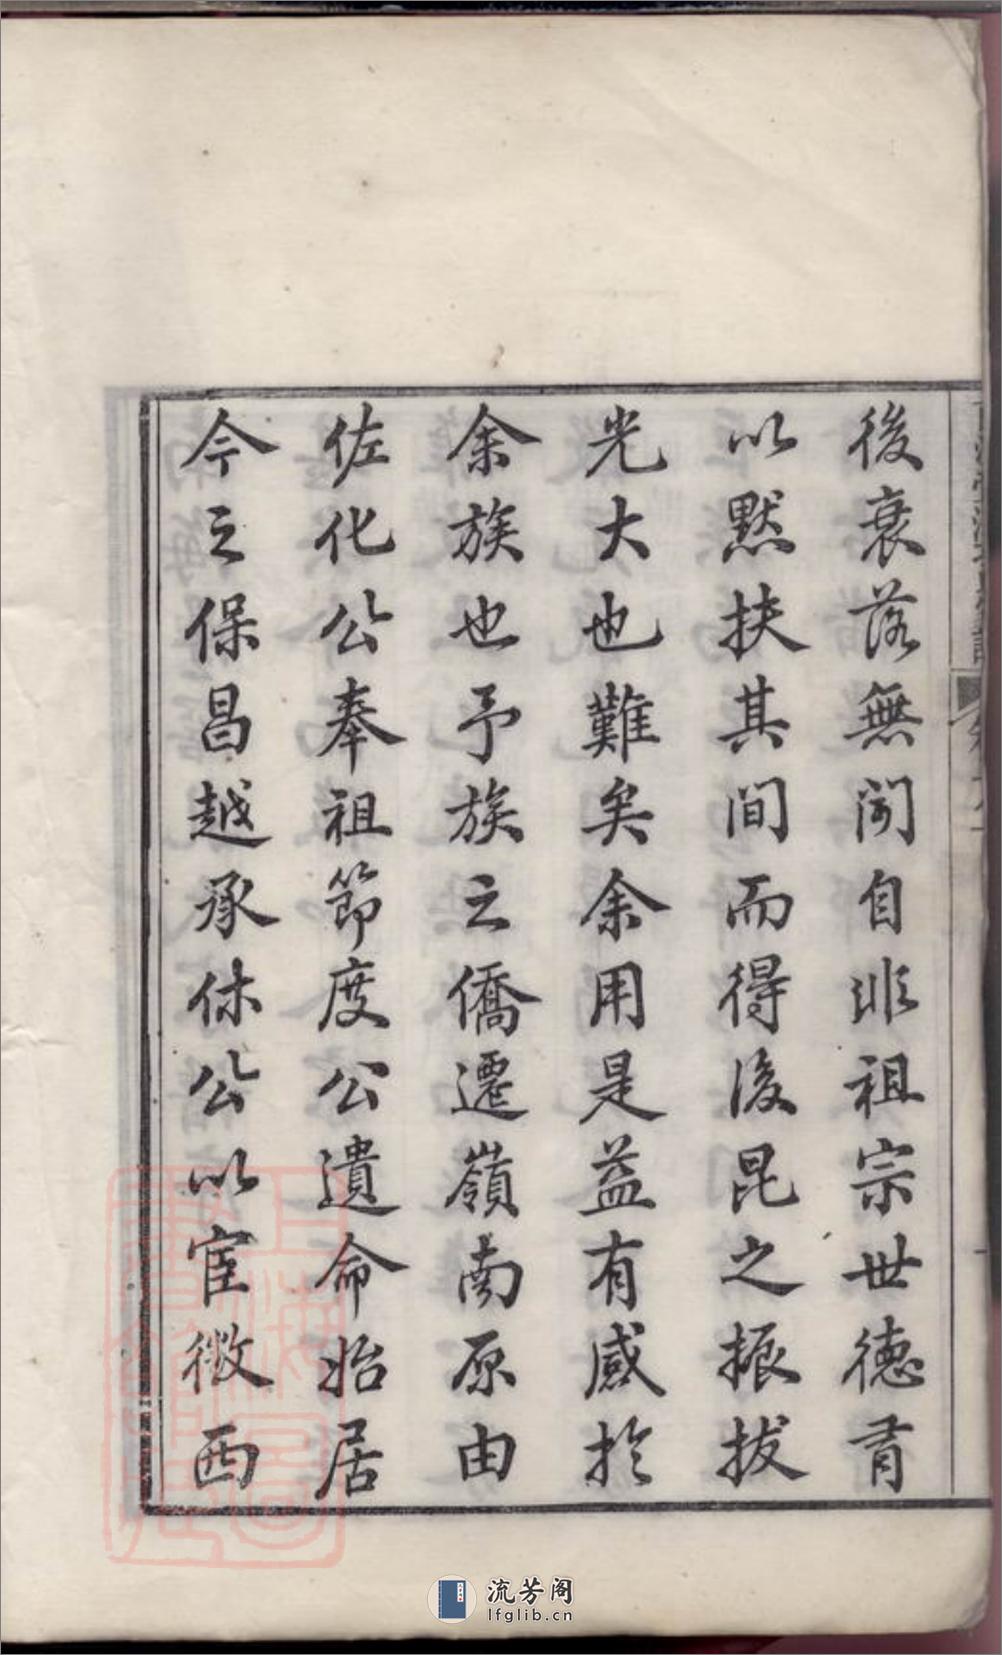 後衰落無聞自非祖宗世德有
以默扶其間而得後昆之振拔
光大也難矣余用是益有感於
余族也予族之僑遷嶺南原由
佐化公奉祖節度公遺命始居
今之保昌越承休公以宦徙西
流芳阁
lfglib.cn